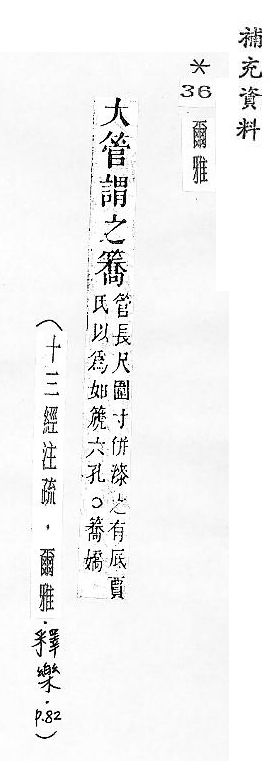 補充資料
*
36
爾雅
大管謂之簥管長尺圍寸併漆之有底賈
氏以為如篪六孔。簥嬌
(十三經注疏.爾雅.釋樂.P.82)